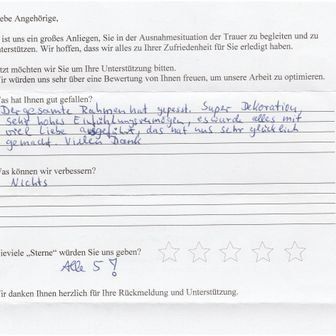 ebe Angehörige,
ist uns ein großes Anliegen, Sie in der Ausnahmesituation der Trauer zu begleiten und zu
terstützen. Wir hoffen, dass wir alles zu Ihrer Zufriedenheit für Sie erledigt haben.
tzt möchten wir Sie um Ihre Unterstützung bitten.
ir würden uns sehr über eine Bewertung von Ihnen freuen, um unsere Arbeit zu optimieren.
as hat Ihnen gut gefallen?
Der gesamte Rahmen hat gepasst. Super Dekoration,
sehr hohes Einfühlungsvermögen, es wurde alles mit
viel Liebe ausgeführt, das hat uns sehr glücklich
gemacht. Vielen Dank
as können wir verbessern?
Nichts
ieviele „Sterne“ würden Sie uns geben?
Alle 5!
ir danken Ihnen herzlich für Ihre Rückmeldung und Unterstützung.